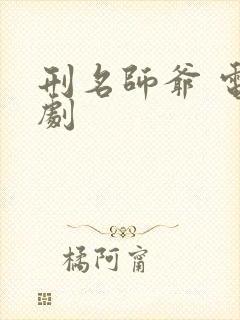 刑名師爺 電
劇
橘阿甯